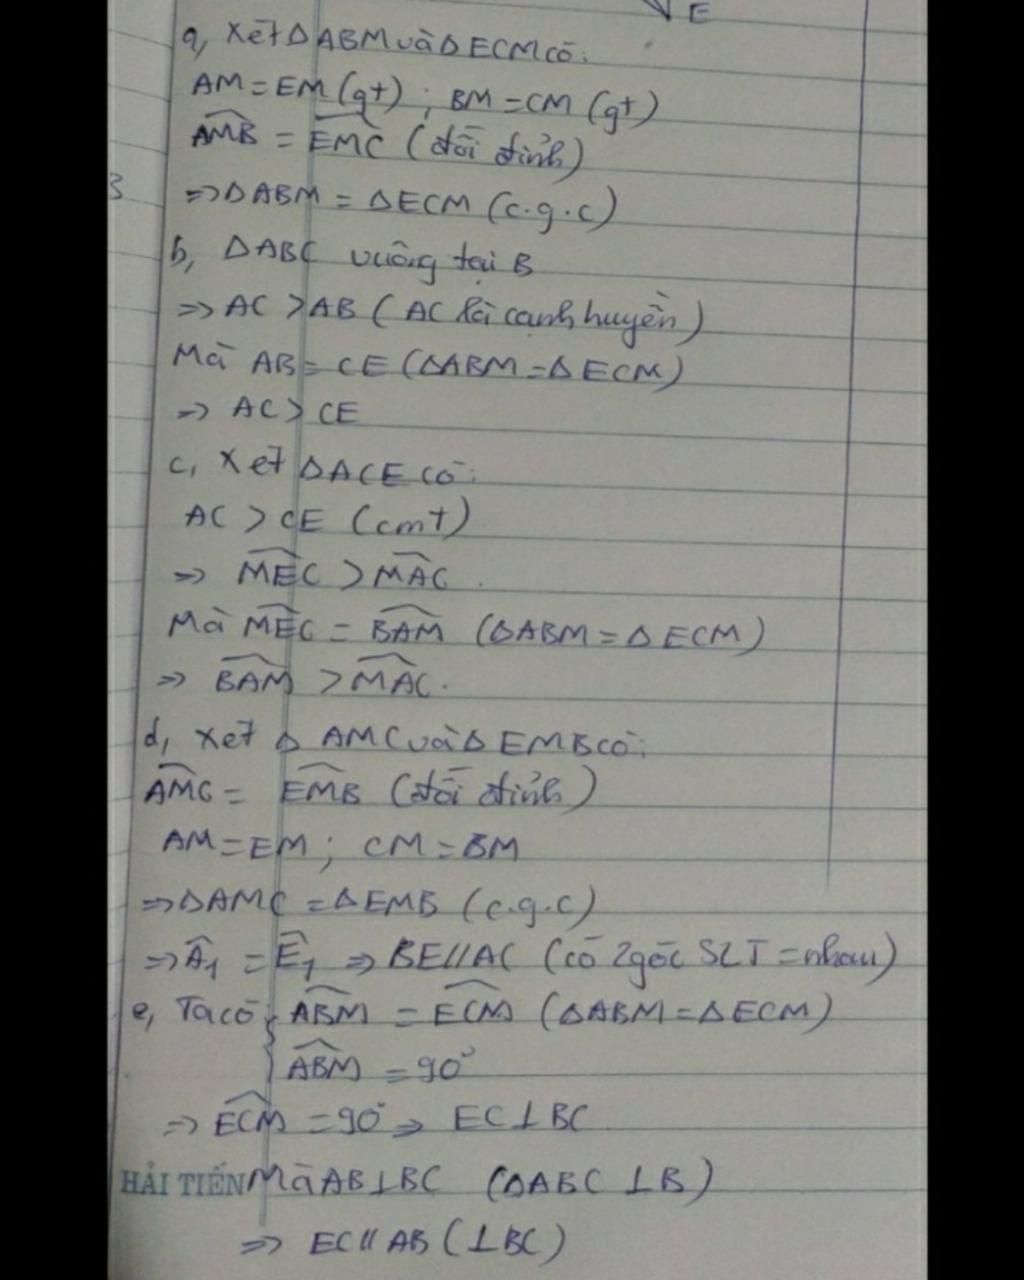 E
a, Xét Δ ABM và Δ ECM có:
AM = EM (gt) ; BM = CM (gt)
3
AMB̂ = EMĈ (đối đỉnh)
=> Δ ABM = Δ ECM (c.g.c)
b, Δ ABC vuông tại B
=> AC > AB ( AC là cạnh huyền )
Mà AB = CE (Δ ABM = Δ ECM)
=> AC > CE
c, Xét Δ ACE có:
AC > CE (cmt)
=> MEĈ > MAĈ .
Mà MEĈ = BAM̂ (Δ ABM = Δ ECM)
=> BAM̂ > MAĈ .
d, Xét Δ AMC và Δ EMB có:
AMĈ = EMB̂ (đối đỉnh)
AM = EM ; CM = BM
=> Δ AMC = Δ EMB (c.g.c)
=> Â1 = Ê1 => BE // AC (có 2 góc SLT = nhau)
e, Ta có { ABM̂ = ECM̂ (Δ ABM = Δ ECM)
ABM̂ = 90°
=> ECM̂ = 90° => EC ⊥ BC
HẢI TIẾN Mà AB ⊥ BC (Δ ABC ⊥ B)
=> EC // AB (⊥ BC)